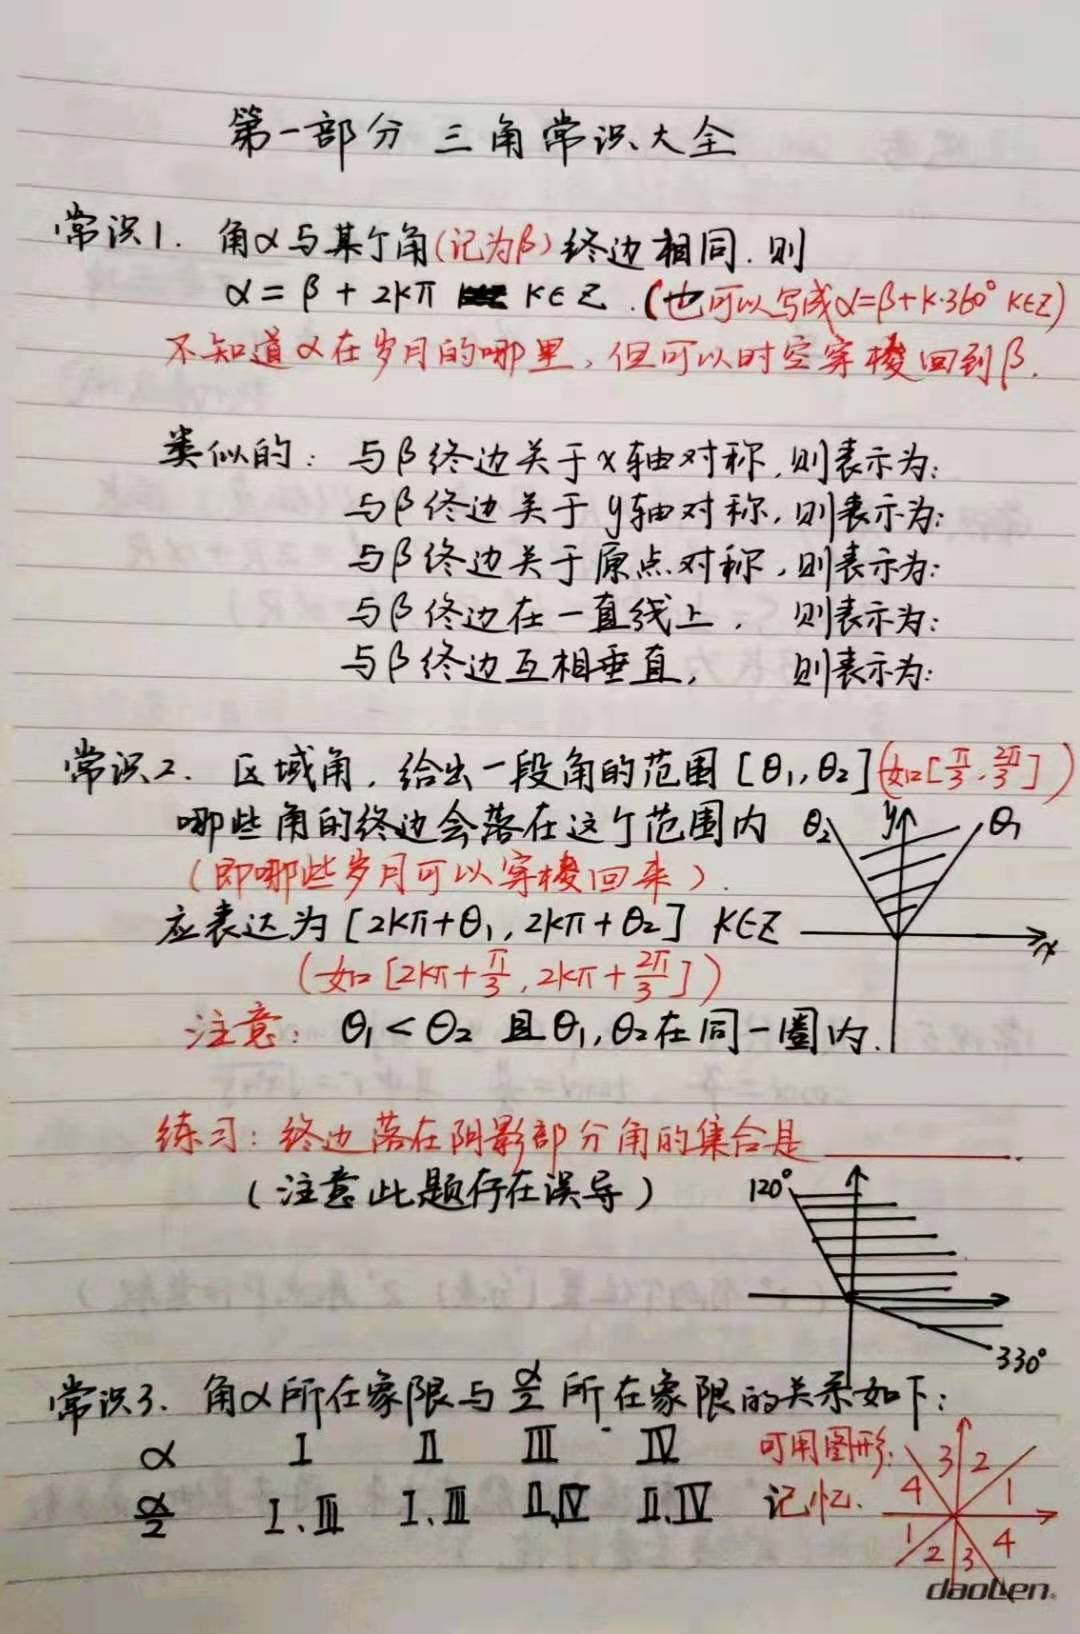 第一部分 三角常识大全
常识1. 角α与某个角(记为β)终边相同.则
α=β+2kπ k∈Z.(也可以写成α=β+k·360° k∈Z)
不知道α在岁月的哪里,但可以时空穿梭回到β.
类似的: 与β终边关于x轴对称,则表示为:
与β终边关于y轴对称,则表示为:
与β终边关于原点对称,则表示为:
与β终边在一直线上, 则表示为:
与β终边互相垂直, 则表示为:
常识2. 区域角,给出一段角的范围[θ₁,θ₂](如[π/3,2π/3])
哪些角的终边会落在这个范围内
θ₂ y θ₁
(即哪些岁月可以穿梭回来).
应表达为[2kπ+θ₁,2kπ+θ₂] k∈Z
x
(如[2kπ+π/3,2kπ+2π/3])
注意: θ₁<θ₂ 且θ₁,θ₂在同一圈内.
练习:终边落在阴影部分角的集合是________.
(注意此题存在误导)
120°
330°
常识3. 角α所在象限与α/2所在象限的关系如下:
α Ⅰ Ⅱ Ⅲ Ⅳ 可用图形
α/2 Ⅰ、Ⅲ Ⅰ、Ⅲ Ⅱ、Ⅳ Ⅱ、Ⅳ 记忆.
3 2
4 1
1 4
2 3
daoben